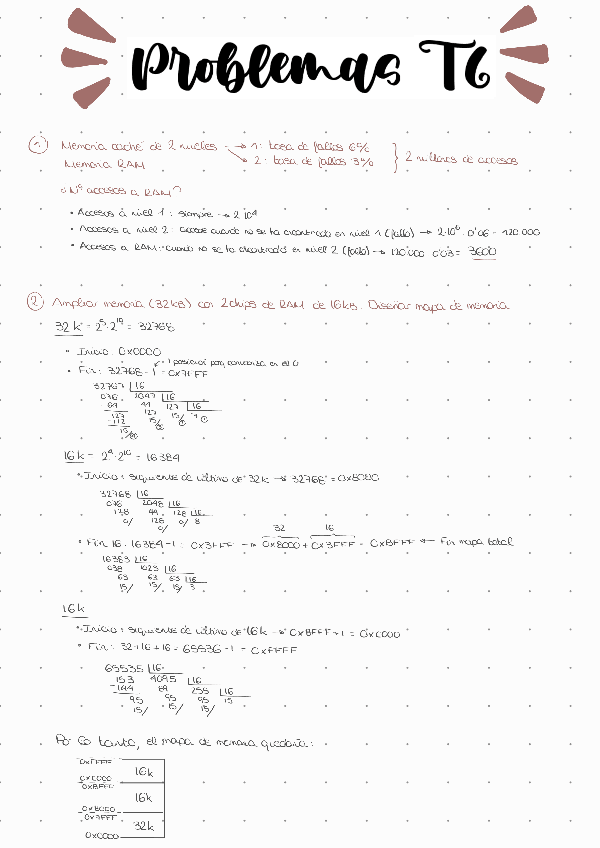 Problemas T6
1 Memoria caché de 2 niveles → 1: tasa de fallos 6%
→ 2: tasa de fallos 3% } 2 millones de accesos
Memoria RAM
¿Nº accesos a RAM?
• Accesos a nivel 1: siempre → 2·10⁶
• Accesos a nivel 2: accede cuando no se ha encontrado en nivel 1 (fallo) → 2·10⁶ · 0'06 = 120 000
• Accesos a RAM: cuando no se ha encontrado en nivel 2 (fallo) → 120 000 · 0'03 = 3600
2 Ampliar memoria (32kB) con 2 chips de RAM de 16kB. Diseñar mapa de memoria
32 k = 2⁵·2¹⁰ = 32768
• Inicio: 0x0000
-1 posición porq comienza en el 0
• Fin: 32768 - 1 = 0x7FFF
32767 |16
076 2047 |16
127 |16
16k = 2⁴·2¹⁰ = 16384
• Inicio: siguiente de último de 32k → 32768 = 0x8000
32768 |16
076 2048 |16
128 |16
0/ 128 0/ 8
0/
32 16
• Fin: 16·16384-1 = 0x3FFF → 0x8000 + 0x3FFF = 0xBFFF ← Fin mapa total
16383 |16
038 1023 |16
63 63 63 |16
15/ 15/ 15/ 3
16k
• Inicio: siguiente de último de 16k → 0xBFFF + 1 = 0xC000
• Fin: 32+16+16 = 65536 - 1 = 0xFFFF
65535 |16
153 4095 |16
-144 89 255 |16
95 95 95 15
15/ 15/ 15/
Por lo tanto, el mapa de memoria quedaría:
0xFFFF
16k
0xC000
0xBFFF
16k
0x8000
0x7FFF
32k
0x0000